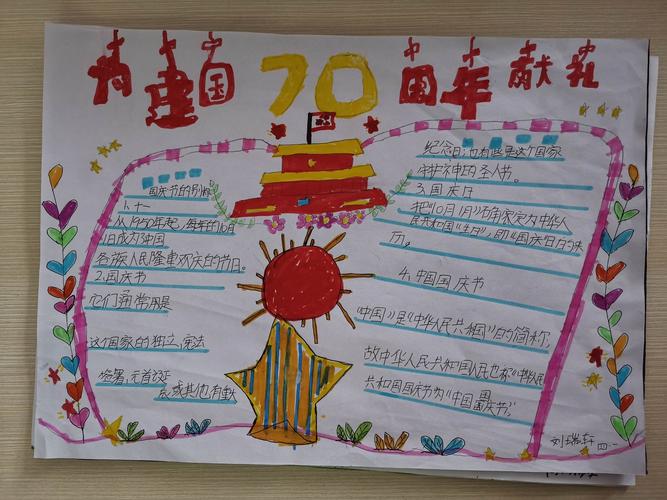 为建国70周年献礼
国庆节的别称
1、十一
从1950年起,每年的10月
1日成为我国
各族人民隆重欢庆的节日。
2.国庆节
它们通常是
这个国家的独立、宪法
签署、元首诞
辰或其他有重大
纪念日;也有些是这个国家
守护神的圣人节。
3.国庆日
把“10月1日”确定为中华人
民共和国“生日”,即“国庆日”的来
历。
4.中国国庆节
“中国”是“中华人民共和国”的简称,
故中华人民共和国人民也称“中华人民
共和国国庆节为“中国国庆节”。
刘瑞轩 四、一